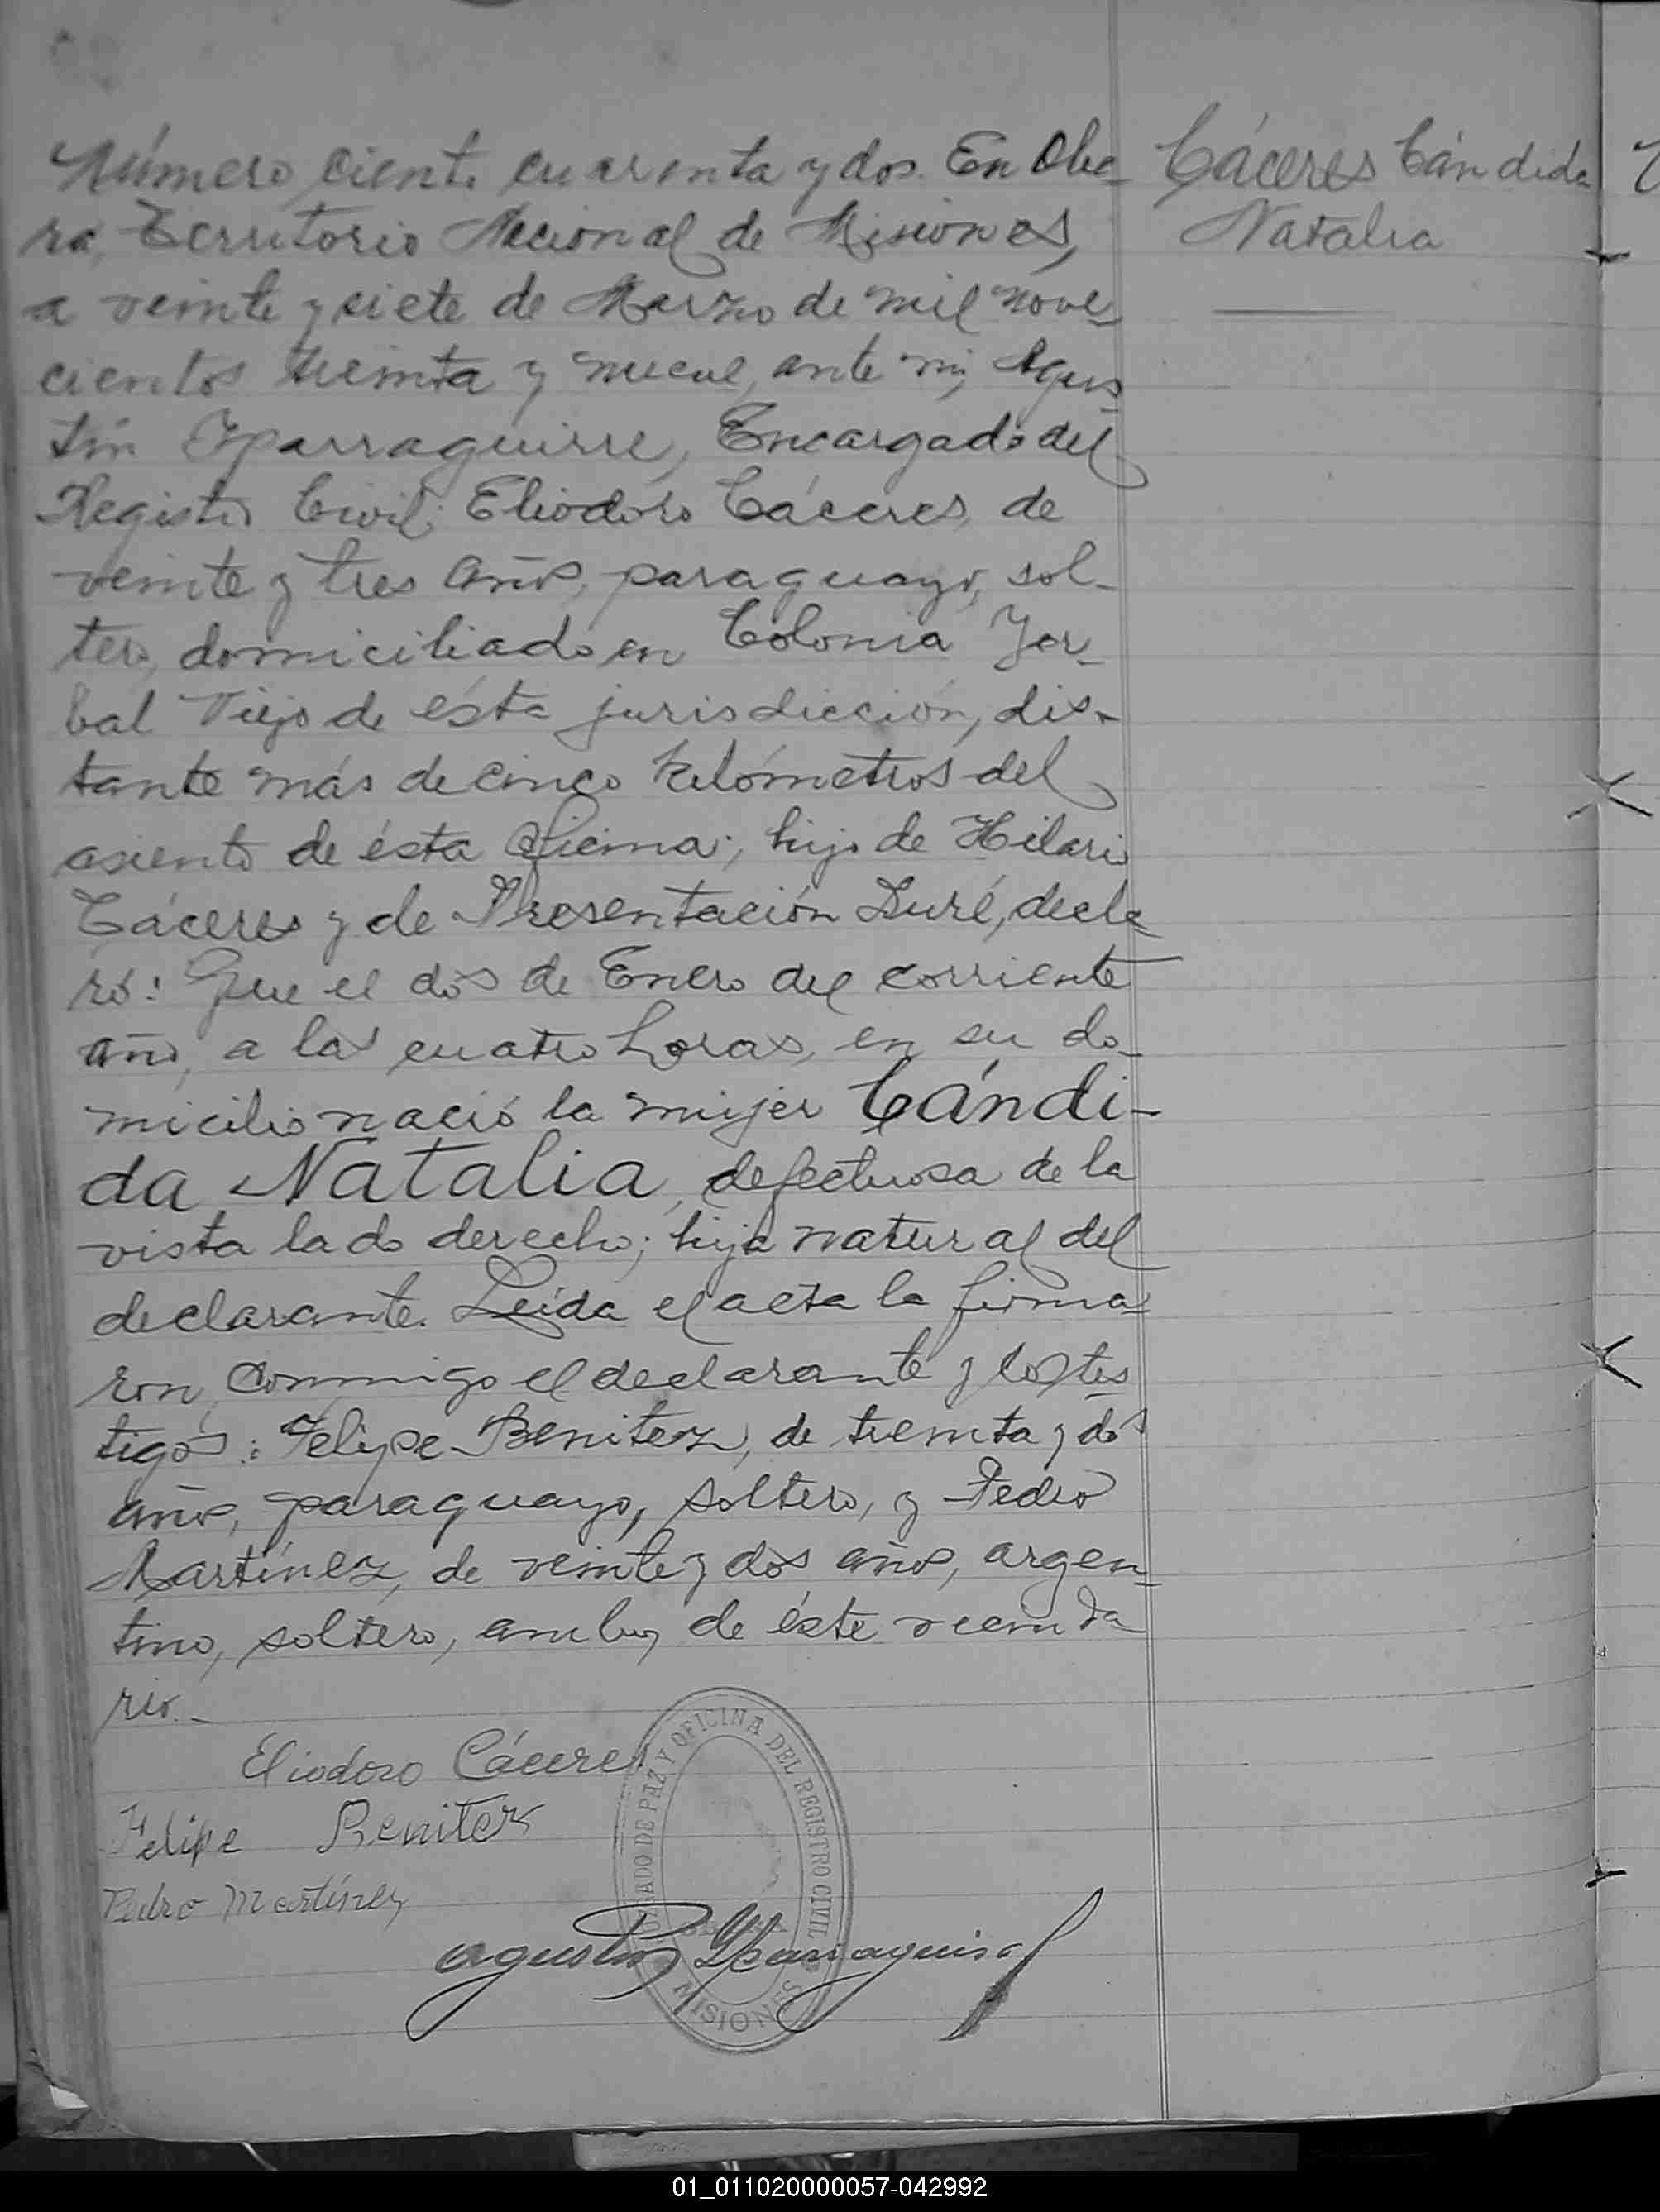 Número ciento cuarenta y dos. En Obe-
rá, Territorio Nacional de Misiones,
a veinte y siete de Marzo de mil nove-
cientos treinta y nueve, ante mi, Agus-
tín Yparraguirre, Encargado del
Registro Civil; Eliodóro Cáceres, de
veinte y tres años, paraguayo, sol-
tero, domiciliado en Colonia Yer-
bal Viejo de ésta jurisdicción, dis-
tante más de cinco kilómetros del
asiento de ésta Oficina; hijo de Hilario
Cáceres y de Presentación Duré, decla-
ró: Que el dos de Enero del corriente
año, a las cuatro horas, en su do-
micilio nació la mujer Cándi-
da Natalia, defectuosa de la
vista lado derecho; hija natural del
declarante. Leída el acta la firma-
ron conmigo el declarante y los tes-
tigos: Felipe Benitez, de treinta y dos
años, paraguayo, soltero, y Pedro
Martínez, de veinte y dos años, argen-
tino, soltero, ambos de éste vecinda-
rio.-
Eliodoro Cáceres
Felipe Beniter
Pedro Martínez
Agustin Yparraguirre
JUZGADO DE PAZ Y OFICINA DEL REGISTRO CIVIL
MISIONES
Cáceres Cándida
Natalia
01_011020000057-042992